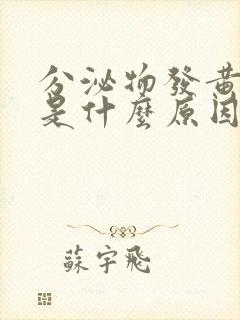 分泌物發黃
是什麼原因
蘇宇飛